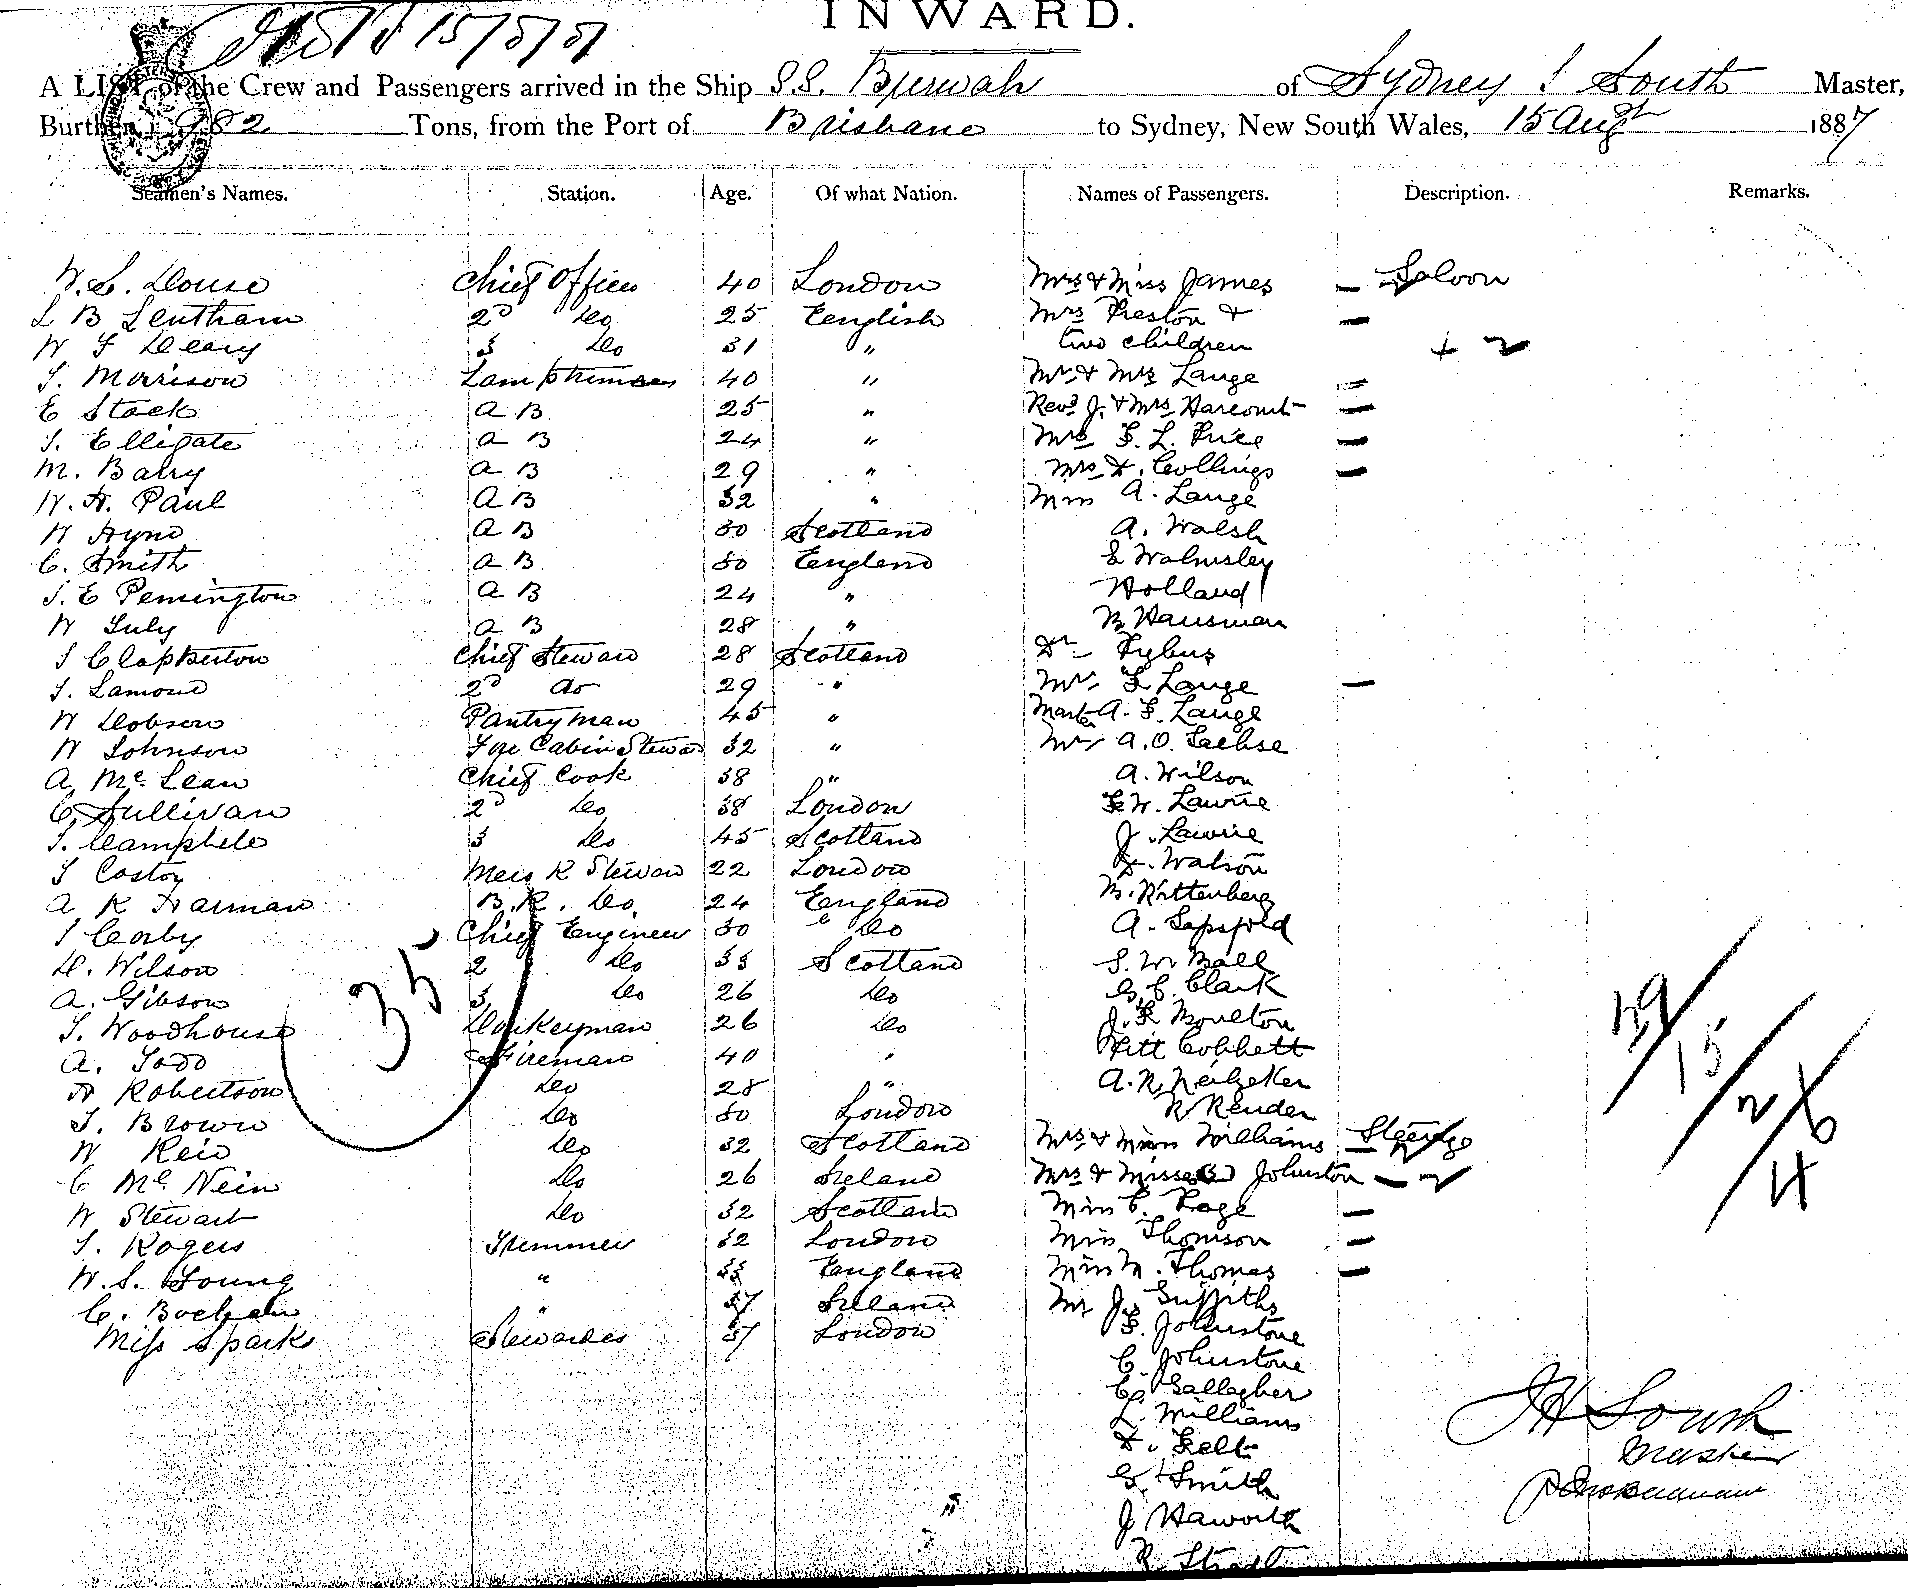 INWARD.
A LIST of the Crew and Passengers arrived in the Ship S.S. Burwah of Sydney J South Master,
Burthen 982 Tons, from the Port of Brisbane to Sydney, New South Wales, 15 Augt 1887
Seamen's Names. Station. Age. Of what Nation. Names of Passengers. Description. Remarks.
W. S. Douse Chief Officer 40 London Mrs & Miss James — Saloon
L B Lentham 2D Do 25 English Mrs Preston & —
W J Deary 3 Do 31 " two children + 2
J. Morrison Lamptrimmer 40 " Mr & Mrs Lange =
E Stack A B 25 " Revd J. & Mrs Harcourt —
J. Elligate A B 24 " Mrs F. L. Price —
M. Balry A B 29 " Mrs D. Collings —
W. H. Paul A B 32 " Miss A. Lange
W Hynd A B 30 Scotland A. Walsh
C. Smith A B 30 England E Walmsley
J. E Pennington A B 24 " Holland
W July A B 28 " B Hausman
J Clapperton Chief Steward 28 Scotland Dr Pybus
J. Lamond 2D do 29 " Mrs F Lange —
W Dobson Pantryman 45 " Master A. F. Lange
W Johnson Fore Cabin Steward 32 " Mr A. O. Sachse
A. Mc Lean Chief Cook 38 " A. Wilson
C Sullivan 2D Do 38 London F W. Lawrie
J. Camphele 3 Do 45 Scotland J. Lawrie
J Castoy Mess R Steward 22 London D. Watson
A R Harman B. R. Do 24 England B. Rittenberg
J Corby Chief Engineer 30 " Do A. Sapsford
D. Wilson 2 Do 33 Scotland S. W. Ball
A. Gibson 3 Do 26 Do G. C. Clark
J. Woodhouse Donkeyman 26 Do J. R Moulton
A. Todd Fireman 40 " Pitt Cobbett
A Robertson Do 28 " A. R.
J. Brown Do 30 London R Render
W Reid Do 32 Scotland Mrs & Miss Williams — Steerage
C Mc Nein Do 26 Ireland Mrs & Misses (2) Johnston — 2
W Stewart Do 32 Scotland Miss C. Page —
J. Rogers Trimmer 32 London Miss Thomson —
W. S. Young " 33 England Miss M. Thomas —
C. " 37 Ireland Mr J. Griffiths
Miss Spark Stewardes 37 London F. Johnstone
C. Johnstone
C. Gallagher
L. Williams
D. Felt
G. Smith
J Haworth
R.
35
29/15/26/4
J H South
Master